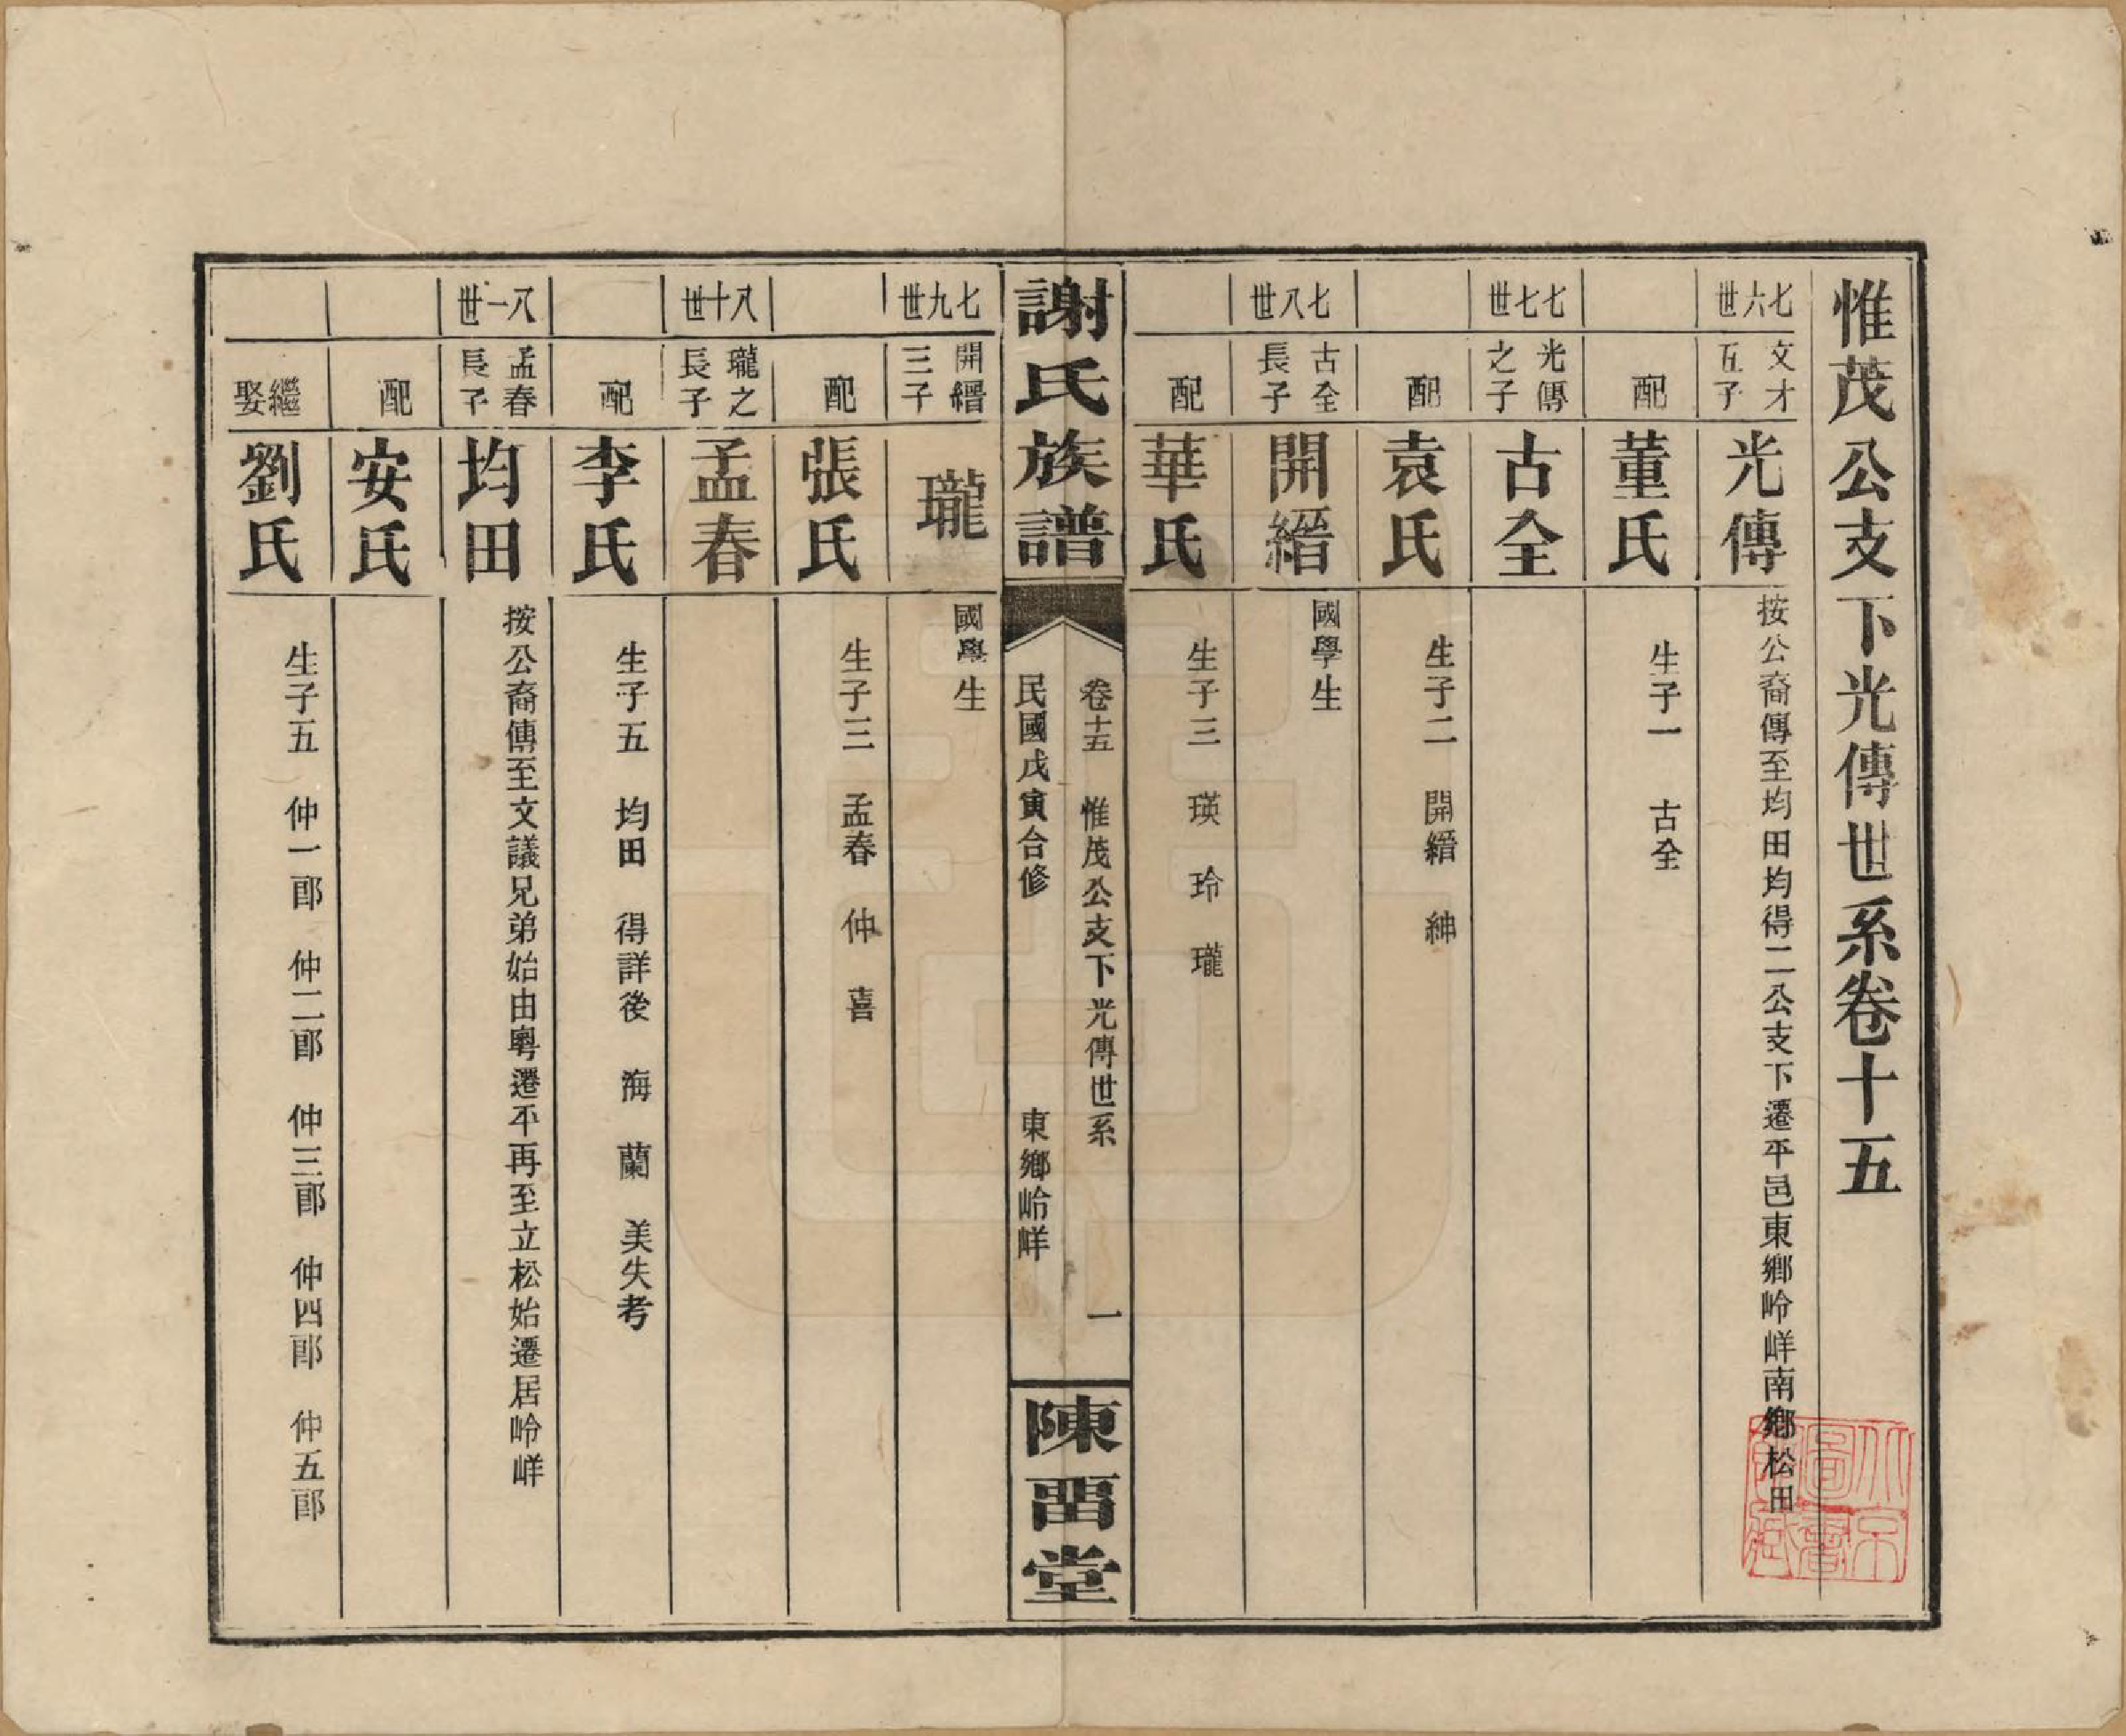 惟茂公支下光傳世系卷十五
七六世
文才五子
光傳
按公裔傳至均田均得二公支下遷平邑東鄉岭嶍南鄉松田
配
董氏
生子一 古全
七七世
光傳之子
古全
配
袁氏
生子二 開縉 紳
七八世
古全長子
開縉
國學生
配
華氏
生子三 瑛 玲 瓏
謝氏族譜
卷十五 惟茂公支下光傳世系 一
民國戊寅合修 東鄉岭嶍
陳畱堂
七九世
開縉三子
瓏
國學生
配
張氏
生子三 孟春 仲 喜
八十世
瓏之長子
孟春
配
李氏
生子五 均田 得詳後 海 蘭 美失考
八一世
孟春長子
均田
按公裔傳至文議兄弟始由粵遷平再至立松始遷居岭嶍
配
安氏
繼娶
劉氏
生子五 仲一郎 仲二郎 仲三郎 仲四郎 仲五郎
北京圖書館藏